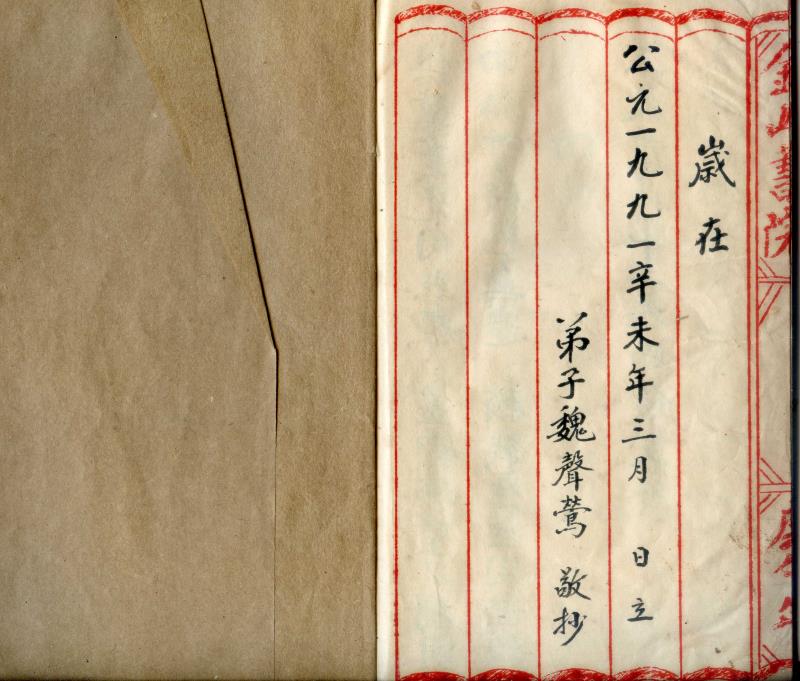 歲在
公元一九九一辛未年三月 日立
弟子魏聲鶯 敬抄